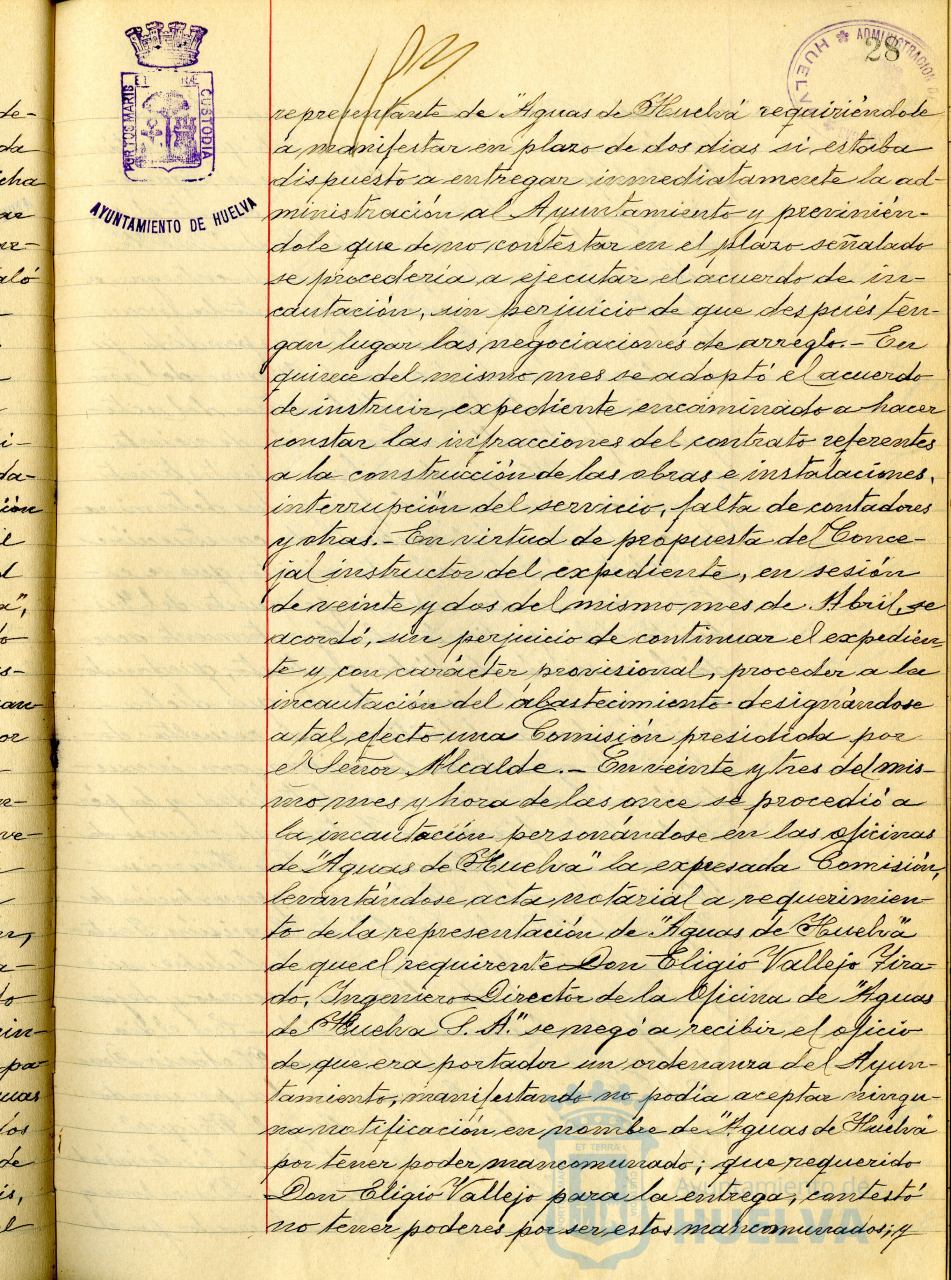 28
ADMINISTRACION
HUELVA
PORTUS MARIS
CUSTODIA
AYUNTAMIENTO DE HUELVA
representante de "Aguas de Huelva" requiriéndole
a manifestar en plazo de dos dias si estaba
dispuesto a entregar inmediatamente la ad-
ministración al Ayuntamiento y previnién-
dole que de no contestar en el plazo señalado
se procedería a ejecutar el acuerdo de in-
cautación, sin perjuicio de que después ten-
gan lugar las negociaciones de arreglo.- En
quince del mismo mes se adoptó el acuerdo
de instruir expediente encaminado a hacer
constar las infracciones del contrato referentes
a la construcción de las obras e instalaciones,
interrupción del servicio, falta de contadores
y otras.- En virtud de propuesta del Conce-
jal instructor del expediente, en sesión
de veinte y dos del mismo mes de Abril, se
acordó, sin perjuicio de continuar el expedien-
te y con carácter provisional, proceder a la
incautación del abastecimiento designándose
a tal efecto una Comisión presidida por
el Señor Alcalde.- En veinte y tres del mis-
mo mes y hora de las once se procedió a
la incautación personándose en las oficinas
de "Aguas de Huelva" la expresada Comisión,
levantándose acta notarial a requerimien-
to de la representación de "Aguas de Huelva"
de que el requirente Don Eligio Vallejo Tira-
do, Ingeniero Director de la Oficina de "Aguas
de Huelva S. A." se negó a recibir el oficio
de que era portador un ordenanza del Ayun-
tamiento, manifestando no podía aceptar ningu-
na notificación en nombre de "Aguas de Huelva"
por tener poder mancomunado; que requerido
Don Eligio Vallejo para la entrega, contestó
no tener poderes por ser estos mancomunados; y
ET TERRAE
Ayuntamiento de
HUELVA